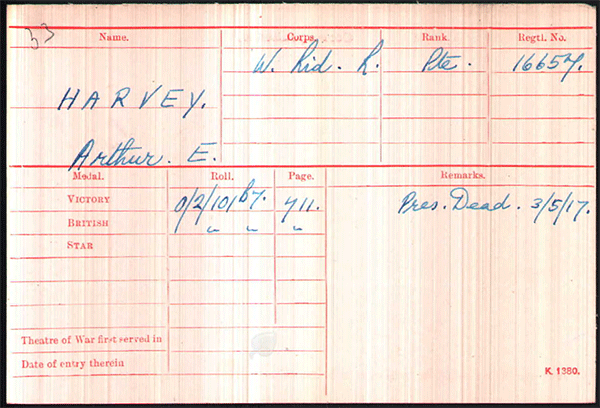 33
Name. Corps. Rank. Regtl. No.
W. Rid. R. Pte. 16657.
HARVEY.
Arthur. E.
Medal. Roll. Page. Remarks.
VICTORY 0/2/101 B7. 711. Pres. Dead. 3/5/17.
BRITISH " " "
STAR
Theatre of War first served in
Date of entry therein
K. 1380.